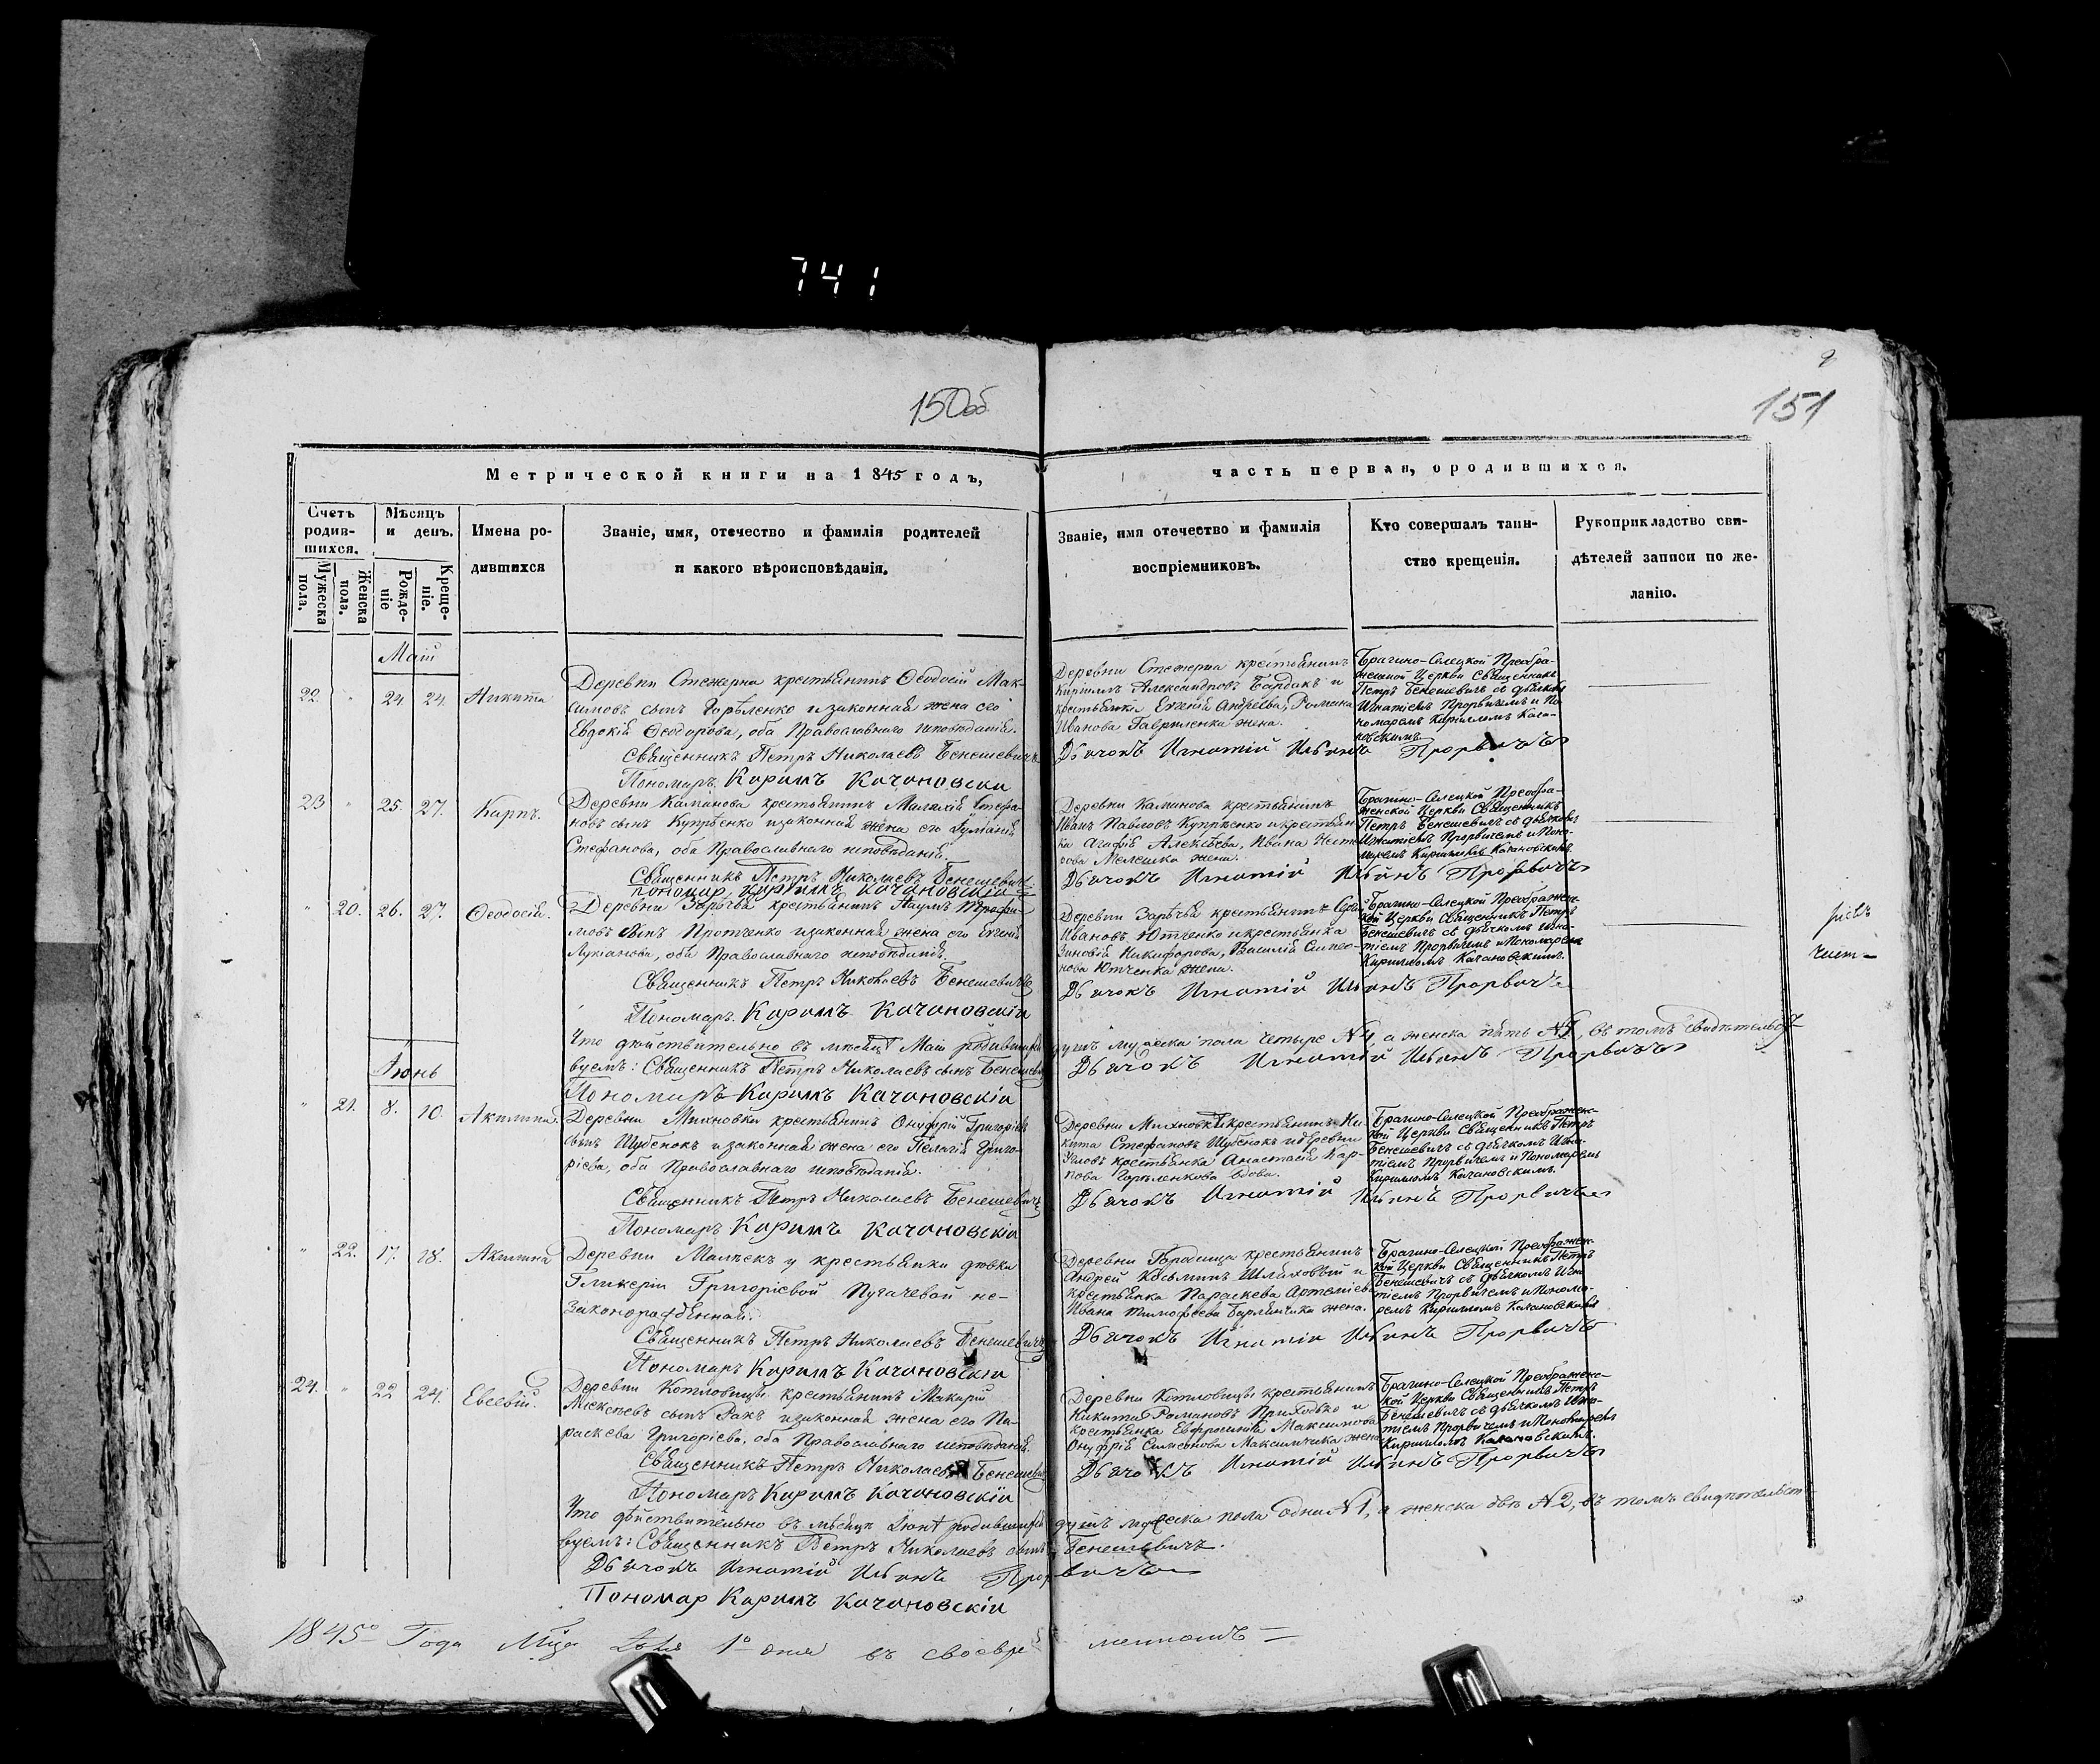 741
150об
151
Метрической книги на 1845 годъ,
часть первая, о родившихся.
Счетъ родив-
шихся.
Мужеска пола.
Женска пола.
Мѣсяцъ и день.
Рожде-
ніе
Креще-
ніе.
Имена ро-
дившихся
Званіе, имя, отечество и фамилія родителей
и какого вѣроисповѣданія.
Званіе, имя отечество и фамилія
воспріемниковъ.
Кто совершалъ таин-
ство крещенія.
Рукоприкладство сви-
дѣтелей записи по же-
ланію.
Маій
22. " 24. 24. Никита
Деревни Стежерна крестьянинъ Ѳеодосій Мак-
симовъ сынъ Горѣленко и законная жена его
Евдокія Ѳеодорова, оба Православнаго исповѣданія.
Священникъ Петръ Николаевъ Бенешевичъ
Пономаръ Кирилъ Качановскій
Деревни Стежерна крестьянинъ
Кириллъ Александровъ Бардакъ и
крестьянка Евгенія Андреева, Романа
Иванова Гавриленка жена.
Дьячокъ Игнатій Ильинъ Прорвичъ
Брагино-Селецкой Преобра-
женской Церкви Священникъ
Петръ Бенешевичъ съ дьячкомъ
Игнатіемъ Прорвичемъ и По-
номаремъ Кирилломъ Кача-
новскимъ.
23 " 25. 27. Карпъ.
Деревни Каманова крестьянинъ Малахій Стефа-
новъ сынъ Купрѣенко и законная жена его
Стефанова, оба Православнаго исповѣданія.
Священникъ Петръ Николаевъ Бенешевичъ
пономар Кирилъ Качановскій
Деревни Каманова крестьянинъ
Иванъ Павловъ Купрѣенко и крестьян-
ка Агафія Алексѣева, Ивана Несте-
рова Мелешка жена.
Дьячокъ Игнатій Ильинъ Прорвичъ
Брагино-Селецкой Преобра-
женской Церкви Священникъ
Петръ Бенешевичъ съ дьячкомъ
Игнатіемъ Прорвичемъ и Поно-
маремъ Кирилломъ Качановскимъ.
" 20. 26. 27. Ѳеодосія.
Деревни Зарѣчья крестьянинъ Наумъ Трофи-
мовъ сынъ Протченко и законная жена его Евгенія
Лукіанова, оба Православнаго исповѣданія.
Священникъ Петръ Николаевъ Бенешевичъ
Пономаръ Кирилъ Качановскій
Деревни Зарѣчья крестьянинъ
Ивановъ Ютченко и крестьянка
Зиновія Никифорова, Василія Симео-
нова Ютченка жена.
Дьячокъ Игнатій Ильинъ Прорвичъ
Брагино-Селецкой Преображен-
кой Церкви Священникъ Петръ
Бенешевичъ съ дьячкомъ Игна-
тіемъ Прорвичемъ и Пономаремъ
Кирилломъ Качановскимъ.
Что дѣйствительно въ мѣсяцѣ Маіи родившихся душъ мужеска пола четыре №4, а женска пять №5, въ томъ свидѣтельст-
вуемъ: Священникъ Петръ Николаевъ сынъ Бенешевичъ
Дьячокъ Игнатій Ильинъ Прорвичъ
Пономаръ Кирилъ Качановскій
Іюнь
" 21. 8. 10. Акилина.
Деревни Михновки крестьянинъ Онуфрій Григоріевъ
сынъ Шубенокъ и законная жена его Пелагія Григо-
ріева, оба Православнаго исповѣданія.
Священникъ Петръ Николаевъ Бенешевичъ
Пономаръ Кирилъ Качановскій
Деревни Михновки крестьянинъ Ни-
кита Стефановъ Шубенокъ и деревни
Угловъ крестьянка Анастасія Кар-
пова Горѣленкова вдова.
Дьячокъ Игнатій Ильинъ Прорвичъ
Брагино-Селецкой Преображенс-
кой Церкви Священникъ Петръ
Бенешевичъ съ дьячкомъ Игна-
тіемъ Прорвичемъ и Пономаремъ
Кирилломъ Качановскимъ.
" 22. 17. 18. Акилина
Деревни Малѣекъ у крестьянки дѣвки
Гликеріи Григоріевой Пугачевой не-
законорожденная.
Священникъ Петръ Николаевъ Бенешевичъ
Пономаръ Кирилъ Качановскій
Деревни Городища крестьянинъ
Андрей Косьминъ Шляховый и
крестьянка Параскева Артеміева
Ивана Тимофеева Барлинчика жена.
Дьячокъ Игнатій Ильинъ Прорвичъ
Брагино-Селецкой Преображен-
кой Церкви Священникъ Петръ
Бенешевичъ съ дьячкомъ Игна-
тіемъ Прорвичемъ и Понома-
ремъ Кирилломъ Качановскимъ
24. " 22 24. Евсевій.
Деревни Котловицы крестьянинъ Макарій
Алексѣевъ сынъ Ракъ и законная жена его Па-
раскева Григоріева, оба Православнаго исповѣданія.
Священникъ Петръ Николаевъ Бенешевичъ
Пономаръ Кирилъ Качановскій
Деревни Котловицы крестьянинъ
Никита Романовъ Приходько и
крестьянка Евфросинія Максимова
Онуфрія Симеонова Максимчика жена
Дьячокъ Игнатій Ильинъ Прорвичъ
Брагино-Селецкой Преображенс-
кой Церкви Священникъ Петръ
Бенешевичъ съ дьячкомъ Игна-
тіемъ Прорвичемъ и Пономаремъ
Кирилломъ Качановскимъ.
Что дѣйствительно въ мѣсяцѣ Іюнѣ родившихся душъ мужеска пола одна №1, а женска двѣ №2, въ томъ свидѣтельст-
вуемъ: Священникъ Петръ Николаевъ сынъ Бенешевичъ.
Дьячокъ Игнатій Ильинъ Прорвичъ
Пономар Кирилъ Качановскій
1845го Года Мца Іюля 1го дня въ своевре менномъ